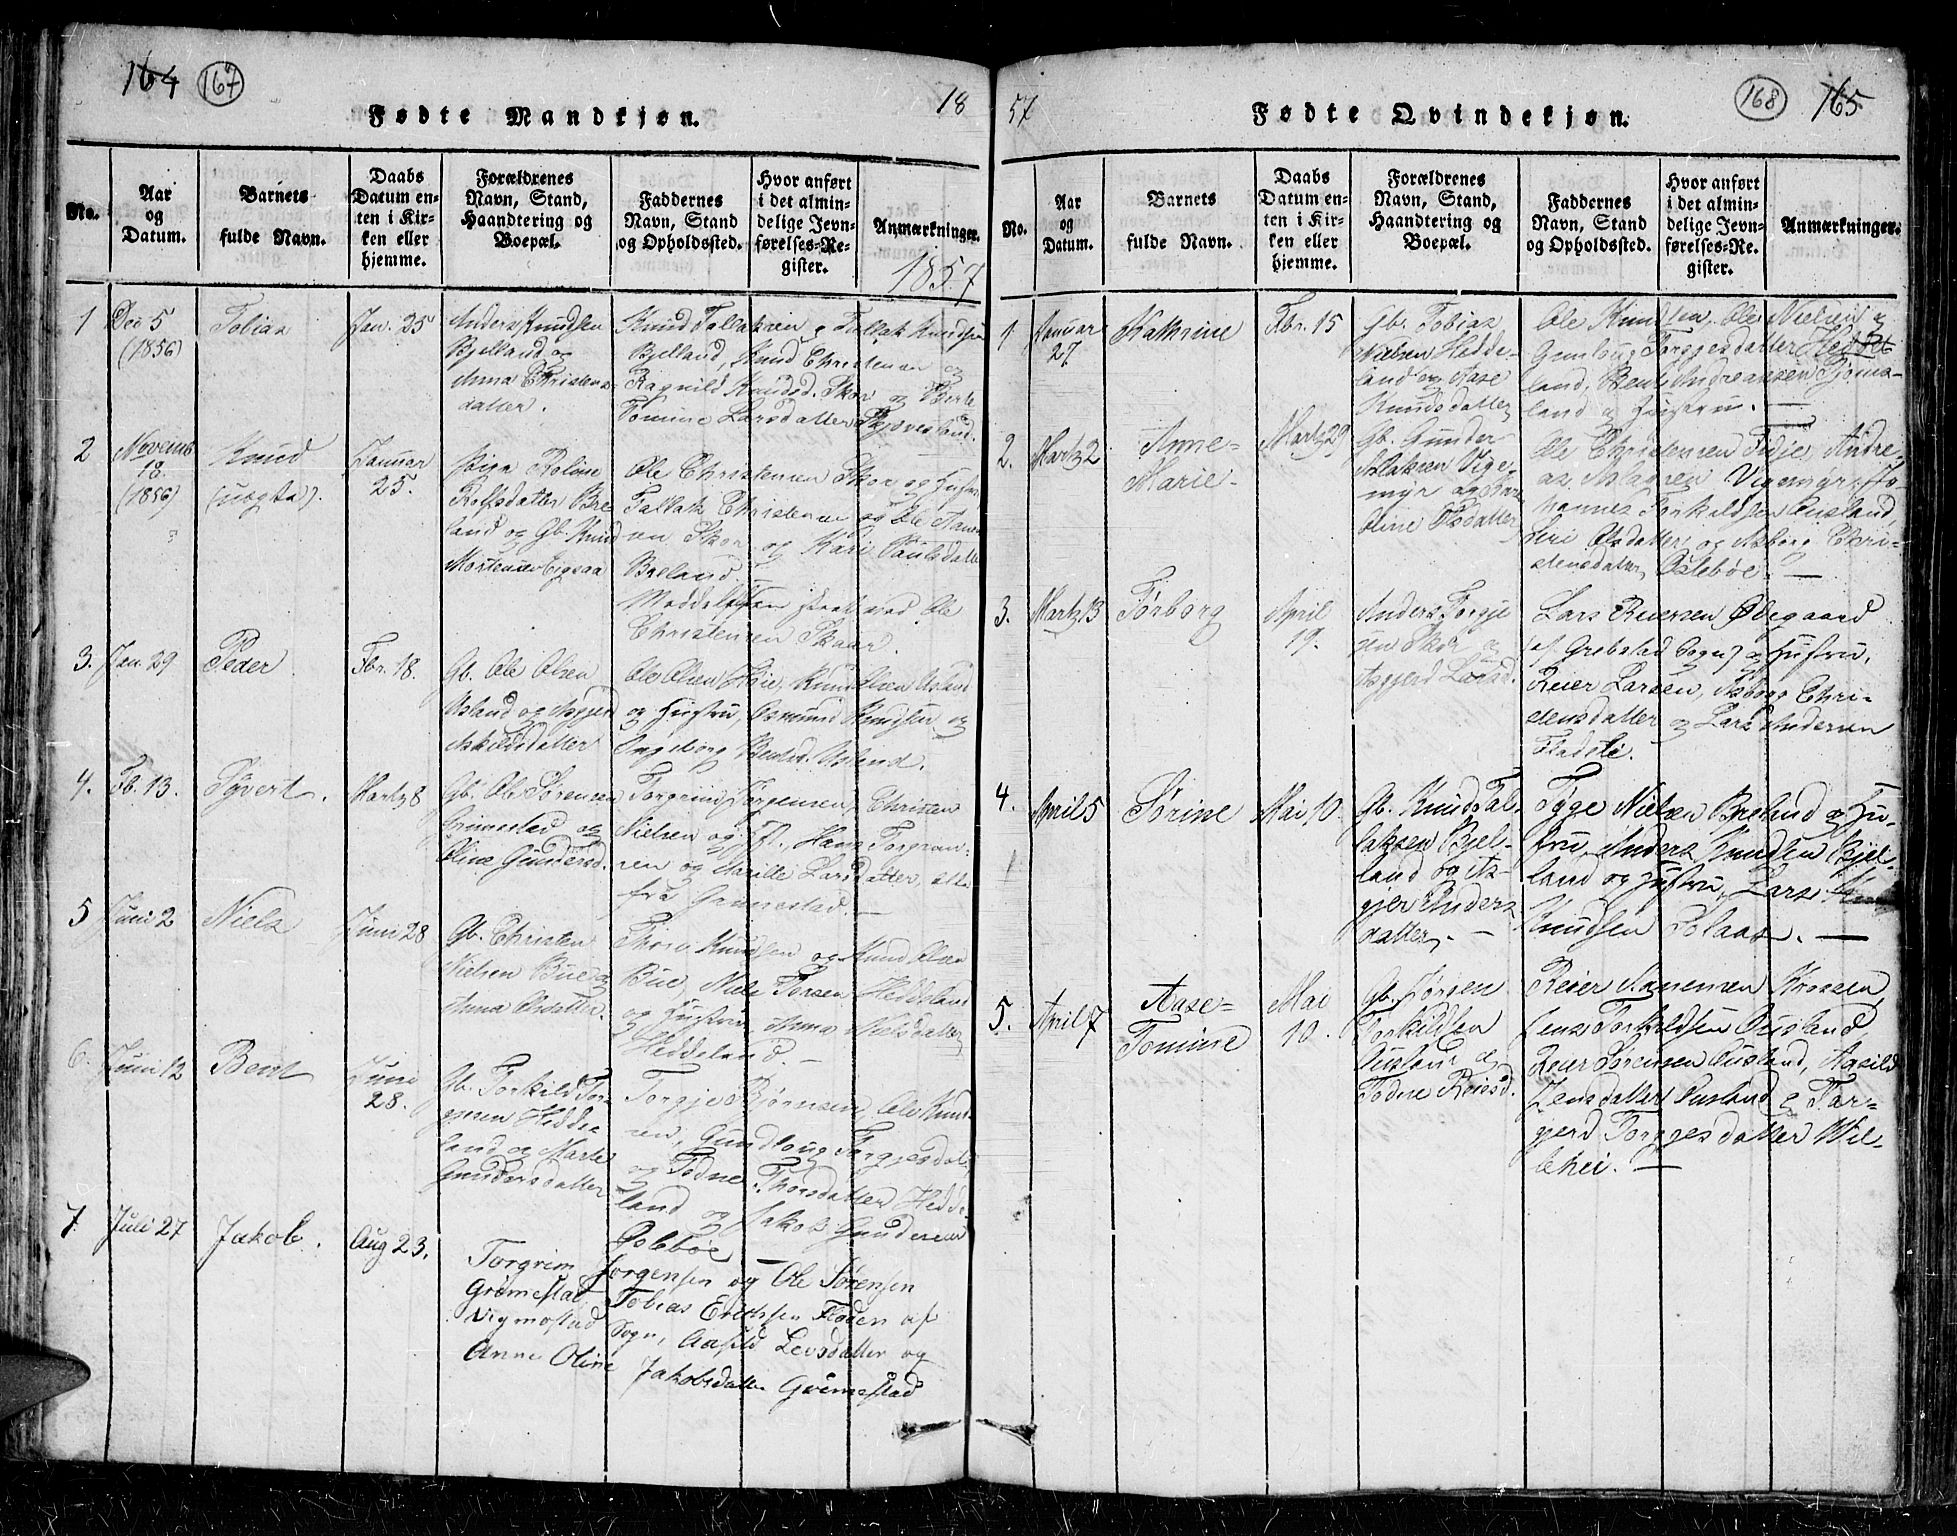 164 167
Fødte Mandkjøn.
18
No.
Aar og Datum.
Barnets fulde Navn.
Daabs Datum enten i Kirken eller hjemme.
Forældrenes Navn, Stand, Haandtering og Boepæl.
Faddernes Navn, Stand og Opholdssted.
Hvor anført i det almindelige Jevnførelses-Register.
Anmærkninger.
1857
1
Dec 5
(1856)
Tobias
Jan. 25
Anders Knudsen
Bjelland og
Anna Christens
datter.
Knud Tallaksen, Tallak Knudsen
Bjelland, Knud Christensen og
Ragnild Knudsd. Skor og Berte
Tomine Larsdatter
2
Novemb
18.
(1856)
Knud
(uægta).
Januar
25.
Pige Roline
Rolfsdatter Bre
land og Gb. Knud
Mortensen Eigsaa
Ole Christensen Skor og Hustru
Tallak Christensen og Ole
Skor og Kari Paulsdatter
Breland.
Ole
Christensen Skaar.
3.
Jan. 29
Peder
Fbr. 18.
Gb. Ole Olsen
Usland og Asgjerd
Askildsdatter
Ole Olsen Høie, Knud Olsen Usland
og Hustru, Osmund Knudsen og
Ingeborg Bentsd. Usland.
4.
Fb. 13.
Syvert.
Martz 8
Gb. Ole Sørensen
Grimestad og
Oline Gundersd.
Torgrim Jørgensen, Christen
Nielsen og H., Hans Torgrim-
sen og Larsdatter, alle
fra Grimestad. —
5
Juni 2
Niels
Juni 28
Gb. Christen
Nielsen Bue og
Anna Olsdatter.
Thore Knudsen og Knud Olsen
Bue, Niels Torsen Heddeland
og Hustru, Anna Nielsdatter
Heddeland. —
6.
Juni 12
Bent
Juni
28.
Gb. Torkild Tor-
gjesen Hedde
land og Marte
Gundersdatter
Torgje Bjørnsen, Ole Knud-
sen, Gundloug Torgjesdatter
og Todne Thorsdatter Hedde-
land og Jakob Gundersen
Oslebøe —
7
Juli 27
Jakob.
Aug 23.
Torgrim Jørgensen og Ole Sørensen
Grimestad Tobias Ericksen Floden af
Vigmostad Sogn, Aasild Levsdatter og
Anne Oline Jakobsdatter Grimestad
57
Fødte Qvindekjøn.
168 165
No.
Aar og Datum.
Barnets fulde Navn.
Daabs Datum enten i Kirken eller hjemme.
Forældrenes Navn, Stand, Haandtering og Boepæl.
Faddernes Navn, Stand og Opholdssted.
Hvor anført i det almindelige Jevnførelses-Register.
Anmærkninger.
1
Januar
27
Kathrine
Fbr. 15
Gb. Tobias
Nielsen Hedde-
land og Aase
Knudsdatter
Ole Knudsen, Ole Nielsen og
Gunloug Torgjesdatter Hedde-
land, Bent Andreassen Tjoms-
land og Hustru. —
2.
Martz 2
Anne-
Marie.
Martz 29
Gb. Gunder
Aslaksen Vige-
myr og
Oline Olsdatter
Ole Christensen Fidje, Andre-
as Aslagsen Vigemyr, Jo-
hannes Torkildsen Ousland,
Siri Olsdatter og Asborg Chri-
stensdatter Oslebøe. —
3.
Martz 13
Torborg
April
19.
Anders Torgje
sen Skor og
Asgjerd Larsd.
Lars Reiersen Ødegaard
(af Grebstad Sogn) og Hustru,
Reier Larsen, Asborg Chri-
stensdatter og Lars Andersen
Fladsli.
4.
April 5
Sørine
Mai 10.
Gb. Knud Tal-
laksen Bjel-
land og As-
gjer Anders
datter. —
Tyge Nielsen Breland og Hu-
stru, Anders Knudsen Bjel-
land og Hustru, Lars
Knudsen Solaas. —
5.
April 7
Aase-
Tomine
Mai
10.
Gb. Jørgen
Torkildsen
Ousland og
Todne Reiersd.
Reier Aanensen Krossen,
Jens Torkildsen Ousland
Reier Sørensen Ousland, Aasild
Jensdatter Ousland og Tar-
gjerd Torgjesdatter Wil-
lehei. —